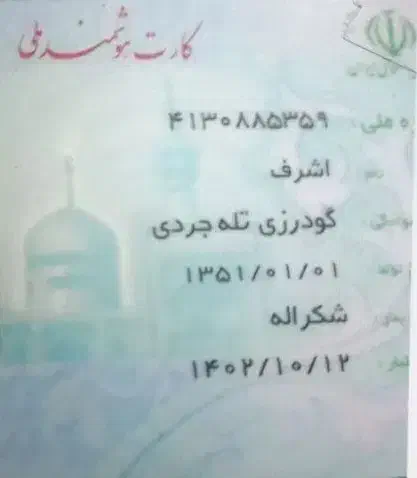 کارت هوشمند ملی
ه ملی: ۴۱۳۰۸۸۵۳۵۹
نام: اشرف
گودرزی تله جردی
تولد: ۱۳۵۱/۰۱/۰۱
شکراله
۱۴۰۲/۱۰/۱۲